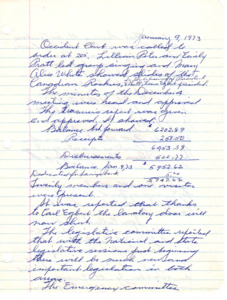 January 9, 1973
Occident Club was called to
order at 20. Lillian Pote and Emily
Pratt led group singing and Mary
Alice White showed slides of the
Canadian Rockies.
The minutes of the December
meeting were read and approved
The treasurer's report was given
and approved. It showed
Balance brt forward $6202.89
Receipts
Disbursements
Balance Jan. 9, 73
Twenty members and one visitor
were present.
It was reported that thanks
to Earl Egbert the lavatory door will
now shut.
The legislative committee reported
that with the National and state
legislative sessions just beginning
there will be much new and
important legislation in both
areas.
The Emergency committee